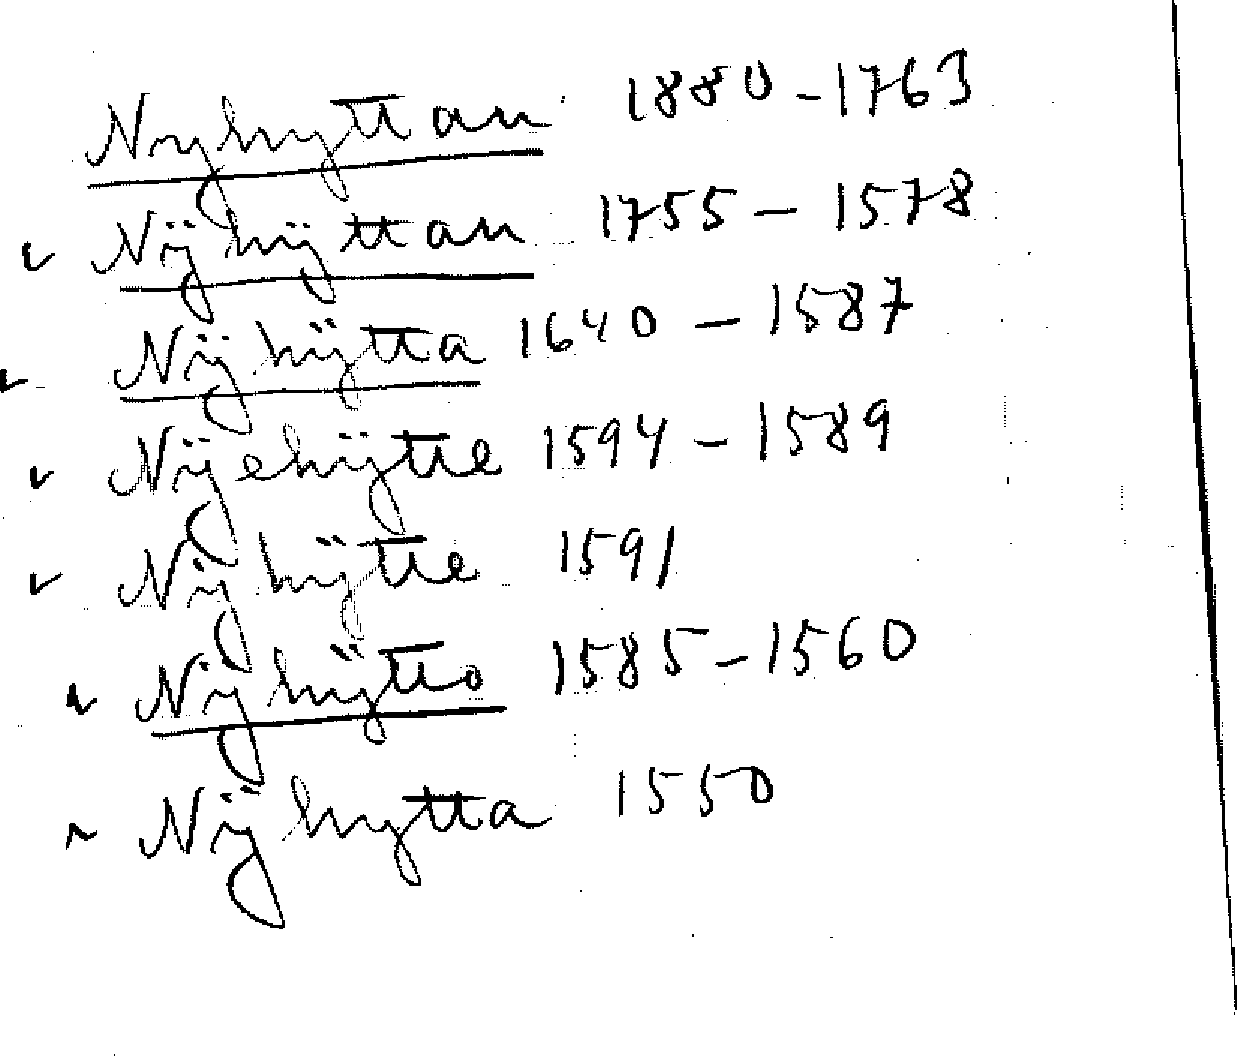 Nyhyttan 1880-1763
Nÿhÿttan 1755-1578
Nÿhÿtta 1640-1587
Nÿehÿtte 1594-1589
Nÿhÿtte 1591
Nÿhÿtto 1585-1560
Nÿhytta 1550